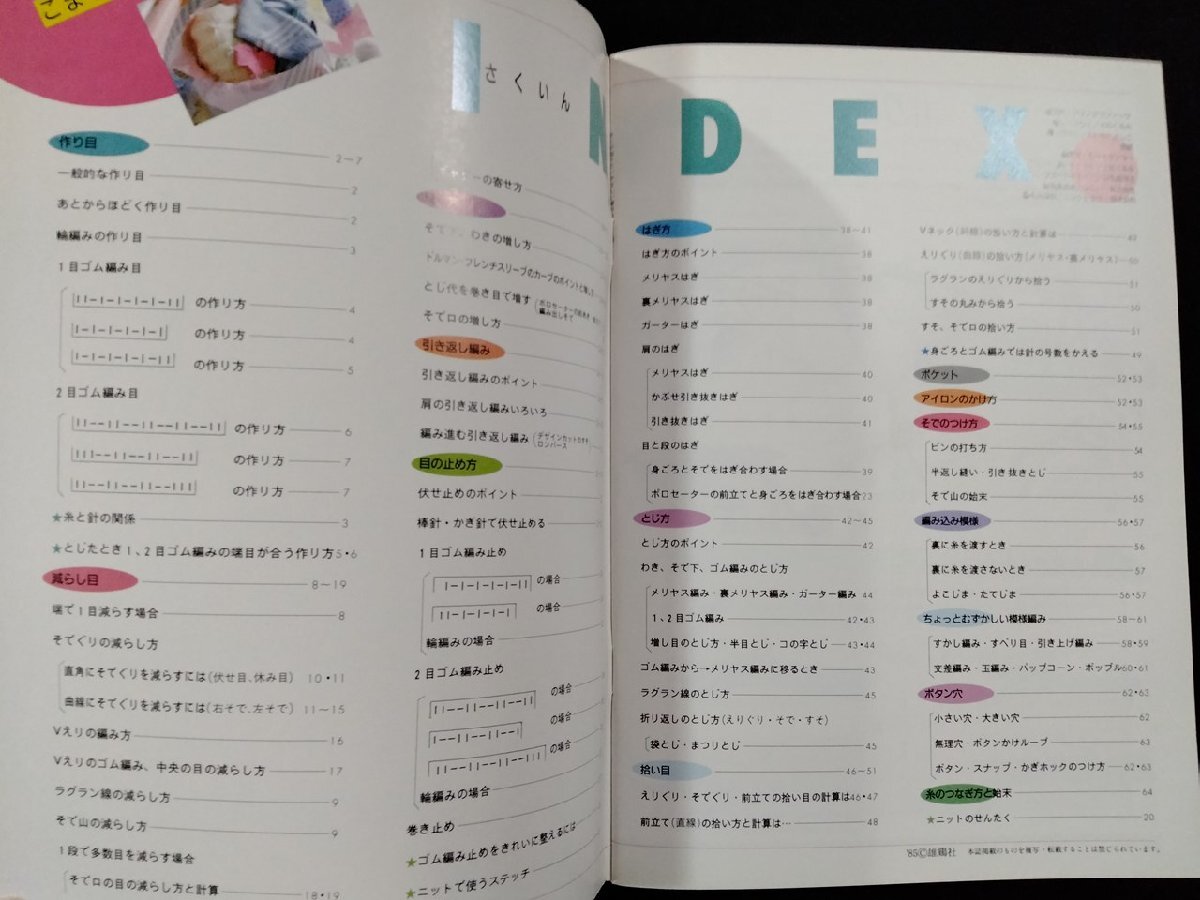 こま
INDEX
さくいん
作り目 2~7
一般的な作り目 2
あとからほどく作り目 2
輪編みの作り目 3
1目ゴム編み目
の作り方 4
の作り方 4
の作り方 5
2目ゴム編み目
の作り方 6
の作り方 7
の作り方 7
★糸と針の関係 3
★とじたとき1、2目ゴム編みの端目が合う作り方 5・6
減らし目 8~19
端で1目減らす場合 8
そでぐりの減らし方
直角にそでぐりを減らすには(伏せ目、休み目) 10・11
曲線にそでぐりを減らすには(右そで、左そで) 11~15
Vえりの編み方 16
Vえりのゴム編み、中央の目の減らし方 17
ラグラン線の減らし方 9
そで山の減らし方 9
1段で多数目を減らす場合
そで口の目の減らし方と計算 18・19
の寄せ方
わきの増し方
ドルマン・フレンチスリーブのカーブのポイントと増し
とじ代を巻き目で増す
そで口の増し方
引き返し編み
引き返し編みのポイント
肩の引き返し編みいろいろ
編み進む引き返し編み
ロンパース
目の止め方
伏せ止めのポイント
棒針・かぎ針で伏せ止める
1目ゴム編み止め
の場合
の場合
輪編みの場合
2目ゴム編み止め
の場合
の場合
輪編みの場合
巻き止め
★ゴム編み止めをきれいに整えるには
★ニットで使うステッチ
はぎ方 38~41
はぎ方のポイント 38
メリヤスはぎ 38
裏メリヤスはぎ 38
ガーターはぎ 38
肩のはぎ
メリヤスはぎ 40
かぶせ引き抜きはぎ 40
引き抜きはぎ 41
目と段のはぎ
身ごろとそでをはぎ合わす場合 39
ポロセーターの前立てと身ごろをはぎ合わす場合 23
とじ方 42~45
とじ方のポイント 42
わき、そで下、ゴム編みのとじ方
メリヤス編み・裏メリヤス編み・ガーター編み 44
1、2目ゴム編み 42・43
増し目のとじ方・半目とじ・コの字とじ 43・44
ゴム編みから→メリヤス編みに移るとき 43
ラグラン線のとじ方 45
折り返しのとじ方(えりぐり・そで・すそ)
袋とじ・まつりとじ 45
拾い目 46~51
えりぐり・そでぐり・前立ての拾い目の計算は 46・47
前立て(直線)の拾い方と計算は… 48
Vネック(斜線)の拾い方と計算は… 49
えりぐり(曲線)の拾い方(メリヤス・裏メリヤス) 50
ラグランのえりぐりから拾う 51
すその丸みから拾う 50
すそ、そで口の拾い方 51
★身ごろとゴム編みでは針の号数をかえる 49
ポケット 52・53
アイロンのかけ方 52・53
そでのつけ方 54・55
ピンの打ち方 54
半返し縫い・引き抜きとじ 55
そで山の始末 55
編み込み模様 56・57
裏に糸を渡すとき 56
裏に糸を渡さないとき 57
よこじま・たてじま 56・57
ちょっとむずかしい模様編み 58~61
すかし編み・すべり目・引き上げ編み 58・59
交差編み・玉編み・パップコーン・ボッブル 60・61
ボタン穴 62・63
小さい穴・大きい穴 62
無理穴 ボタンかけループ 63
ボタン・スナップ・かぎホックのつけ方 62・63
糸のつなぎ方と始末 64
★ニットのせんたく 20
'85©雄鶏社 本誌掲載のものを複写・転載することは禁じられています。